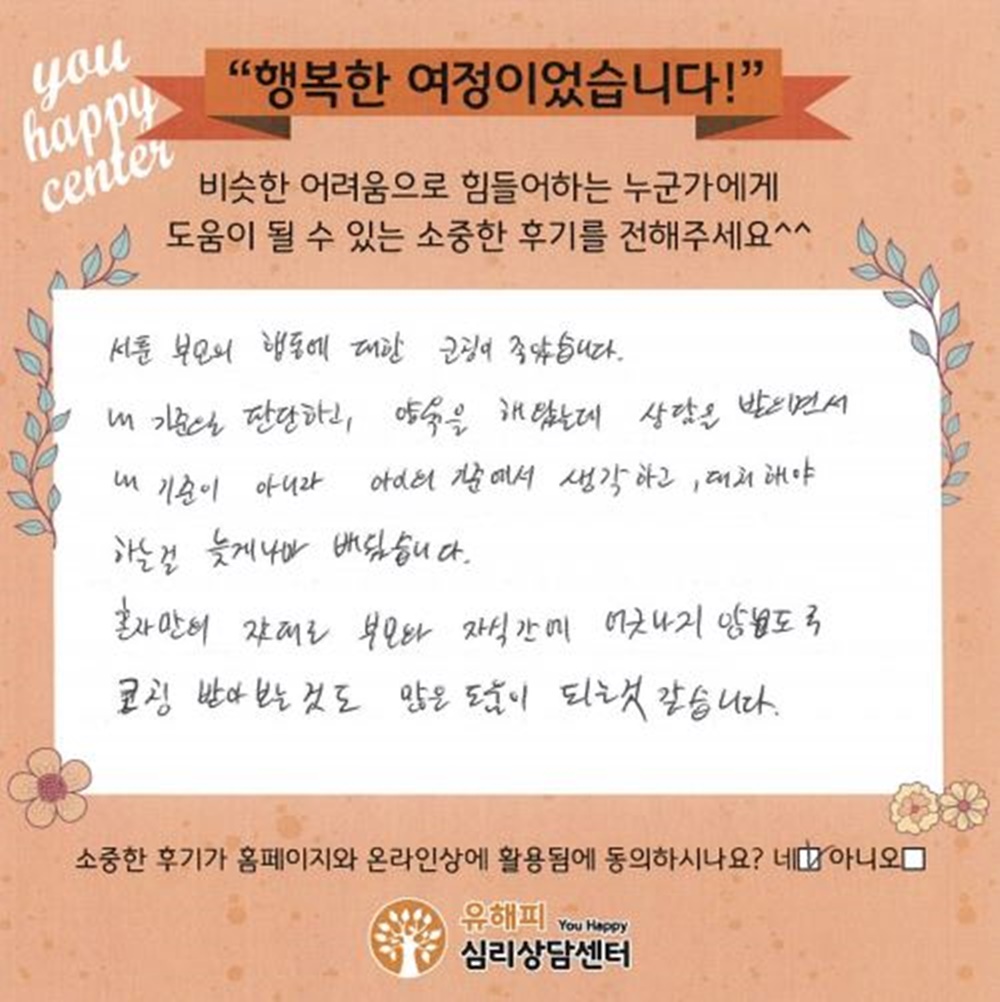 you
happy
center
“행복한 여정이었습니다!”
비슷한 어려움으로 힘들어하는 누군가에게
도움이 될 수 있는 소중한 후기를 전해주세요^^
서툰 부모의 행동에 대한 코칭이 좋았습니다.
내 기준으로 판단하고, 양육을 해왔는데 상담을 받으면서
내 기준이 아니라 아이의 기준에서 생각하고, 대처해야
하는걸 늦게나마 배웠습니다.
혼자만의 잣대로 부모와 자식간에 어긋나지 않도록
코칭 받아보는것도 많은 도움이 되는것 같습니다.
소중한 후기가 홈페이지와 온라인상에 활용됨에 동의하시나요? 네 아니오
유해피 You Happy
심리상담센터